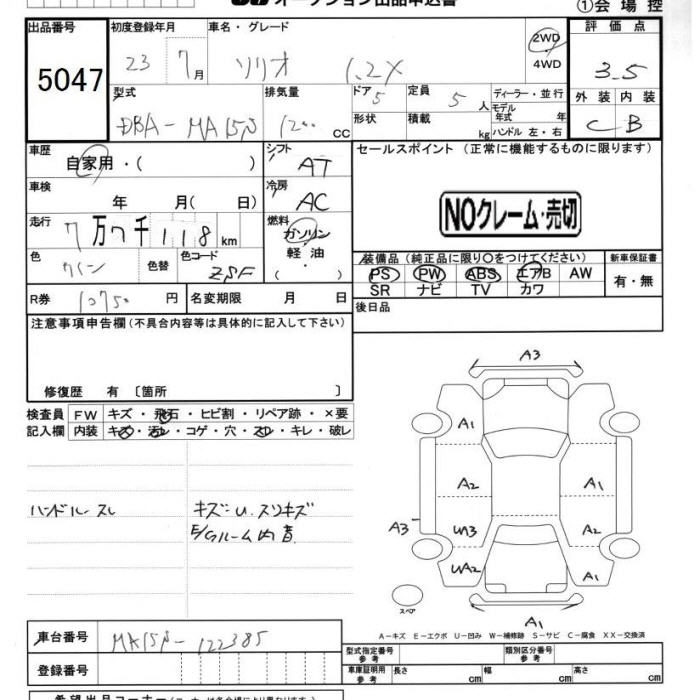 オークション出品申込書
①会場控
出品番号
5047
初度登録年月
23 7月
車名・グレード
ソリオ 1.2X
2WD
4WD
評価点
3.5
外装 内装
C B
型式
DBA-MA15S
排気量
1200 cc
ドア 5
形状
定員 5 人
積載 kg
ディーラー・並行
モデル年式 年
ハンドル 左・右
車歴
自家用・( )
シフト
AT
車検
年 月( 日)
冷房
AC
走行
7万7千118km
燃料
ガソリン
軽油
・( )
色
ワイン
色替
色コード
ZSF
R券 10750 円
名変期限 月 日
セールスポイント (正常に機能するものに限ります)
NOクレーム・売切
装備品(純正品に限り○をつけてください)
PS PW ABS エアB AW
SR ナビ TV カワ
新車保証書
有・無
後日品
注意事項申告欄(不具合内容等は具体的に記入して下さい)
修復歴 有 〔箇所 〕
検査員 FW キズ・飛石・ヒビ割・リペア跡・×要
記入欄 内装 キズ・汚レ・コゲ・穴・スレ・キレ・破レ
ハンドル スレ
キズ=U. スリキズ
E/Gルーム内音
A3
A1
A2 A1
A3 UA3 A2
UA2 A1
スペア
A1
A-キズ E-エクボ U-凹み W-補修跡 S-サビ C-腐食 XX-交換済
車台番号
MA15S-122385
登録番号
型式指定番号 参考
類別区分番号 参考
車庫証明用 参考
長さ cm 幅 cm 高さ cm
希望出品コーナー